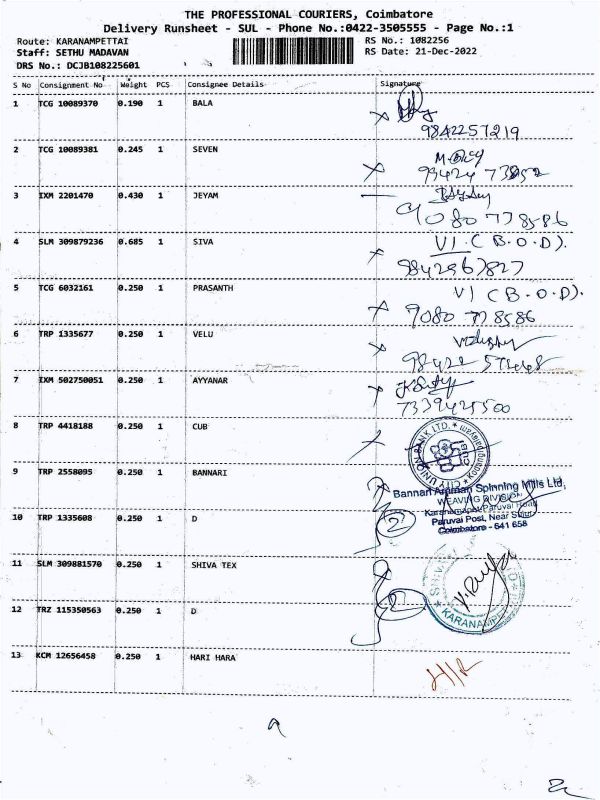 THE PROFESSIONAL COURIERS, Coimbatore
Delivery Runsheet - SUL - Phone No.:0422-3505555 - Page No.:1
Route: KARANAMPETTAI RS No.: 1082256
Staff: SETHU MADAVAN RS Date: 21-Dec-2022
DRS No.: DCJB108225601
S No Consignment No Weight PCS Consignee Details Signature
1 TCG 10089370 0.190 1 BALA
9842257219
2 TCG 10089381 0.245 1 SEVEN
3 IXM 2201470 0.430 1 JEYAM
9080 778586
4 SLM 309879236 0.685 1 SIVA VI.(B.O.D).
9842567827
5 TCG 6032161 0.250 1 PRASANTH VI (B.O.D).
9080 778586
6 TRP 1335677 0.250 1 VELU
7 IXM 502750051 0.250 1 AYYANAR
7339425500
8 TRP 4418188 0.250 1 CUB
CITY UNION BANK LTD.
CUB
9 TRP 2558095 0.250 1 BANNARI
Bannari Amman Spinning Mills Ltd,
WEAVING DIVISION
Paruvai Post, Near Sulur
Coimbatore - 641 658
10 TRP 1335608 0.250 1 D 2
11 SLM 309881570 0.250 1 SHIVA TEX
KARANAMPET
12 TRZ 115350563 0.250 1 D 2
13 KCM 12656458 0.250 1 HARI HARA H/R